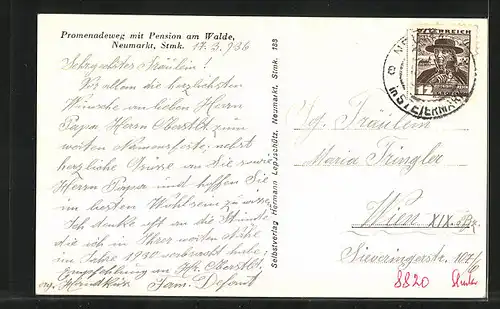 Promenadeweg mit Pension am Walde,
Neumarkt, Stmk. 17.3.936
Sehrgeehrtes Fräulein!
Vor allem die herzlichsten
Wünsche am lieben Herrn
Papa Herrn Oberstlt zum
werten Namensfeste; nebst
herzliche Grüsse an Sie sowie
Herrn Papa und hoffen Sie
im besten Wohlsein zu
Ich denke oft an die Stunde
die ich in Ihrer werten Nähe
im Jahre 1930 verbracht habe,
Empfehlung an Hr. Oberstlt.
erg. Handkuss Fam. Defant
Selbstverlag Hermann Leptschütz, Neumarkt, Stmk. 183
ÖSTERREICH
12
in STEIERMARK
Fräulein
Maria Pringler
Wien XIX. Bez.
Sieveringerstr. 107/6
8820